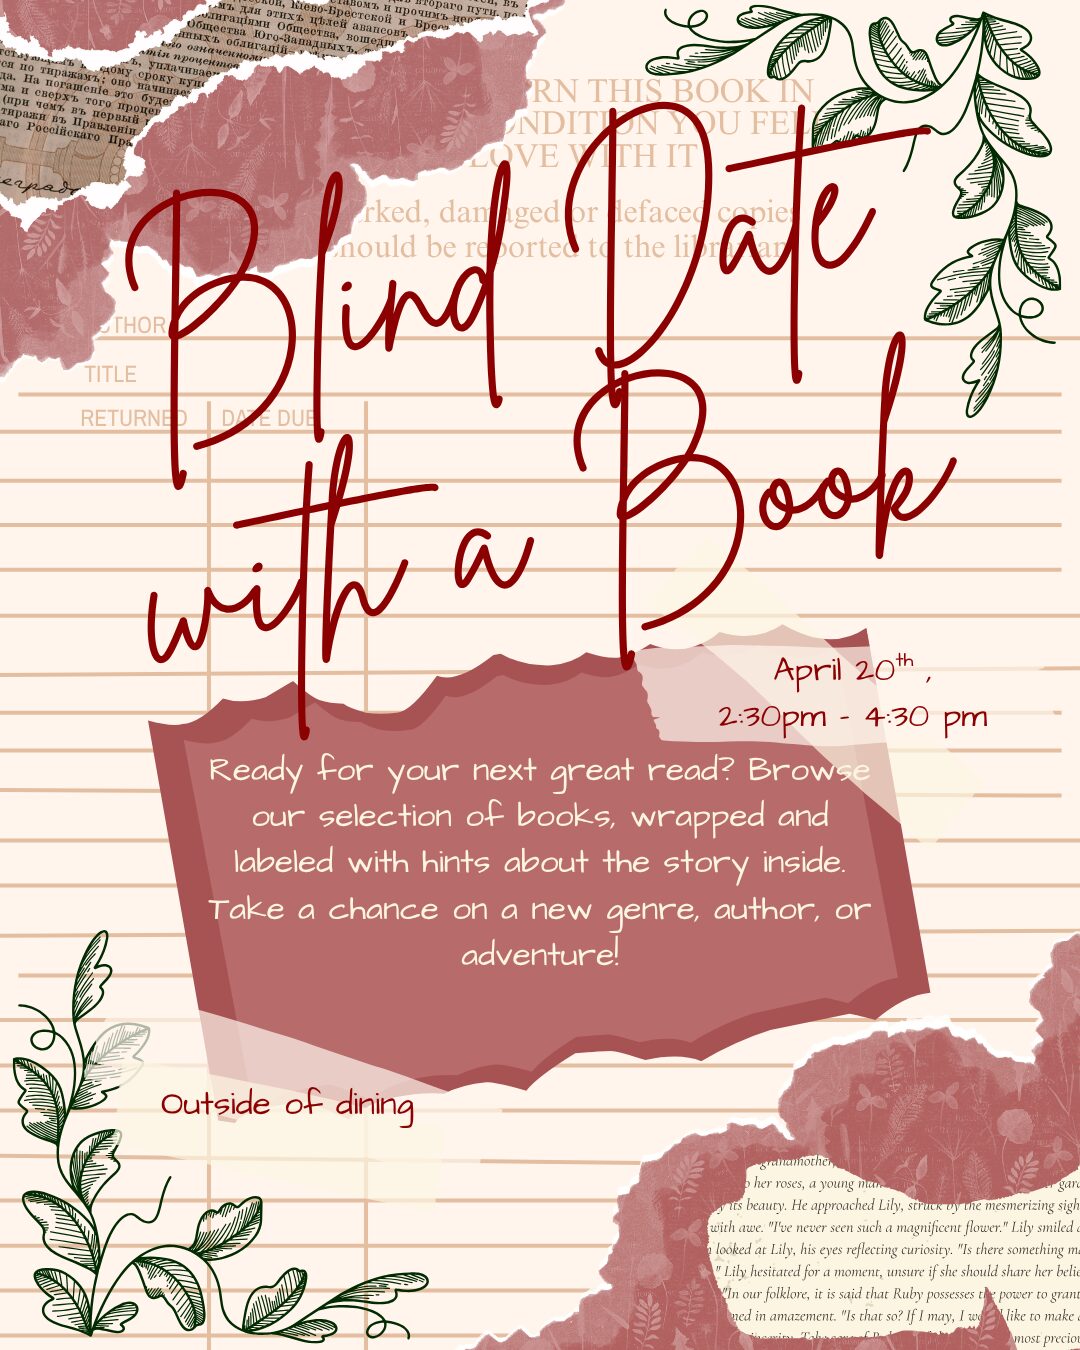 облигаціями Общества, вошедш
Общества Юго-Западныхъ.
RN THIS BOOK IN
ONDITION YOU FEEL
LOVE WITH IT
rked, damaged or defaced copies
should be reported to the librarian
Blind Date
THOR
TITLE
RETURNED DATE DUE
with a Book
April 20th ,
2:30pm - 4:30 pm
Ready for your next great read? Browse
our selection of books, wrapped and
labeled with hints about the story inside.
Take a chance on a new genre, author, or
adventure!
Outside of dining
grandmother,
her roses, a young man
its beauty. He approached Lily, struck by the mesmerizing sigh
with awe. "I've never seen such a magnificent flower." Lily smiled
looked at Lily, his eyes reflecting curiosity. "Is there something
" Lily hesitated for a moment, unsure if she should share her belie
"In our folklore, it is said that Ruby possesses the power to grant
ned in amazement. "Is that so? If I may, I would like to make
most precio